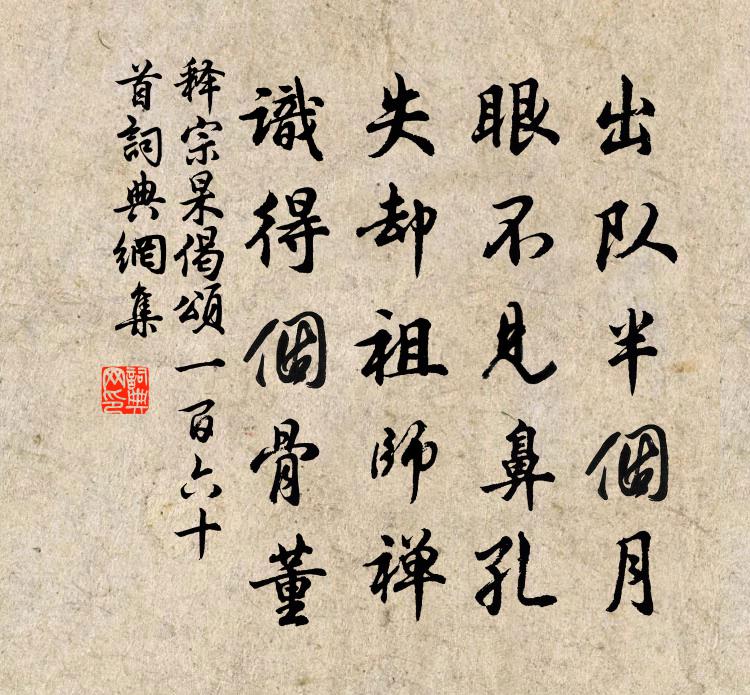 出队半個月
眼不见鼻孔
失却祖師禅
識得個骨董
释宗杲偈頌一百六十
首詞典網集
詞典
网印